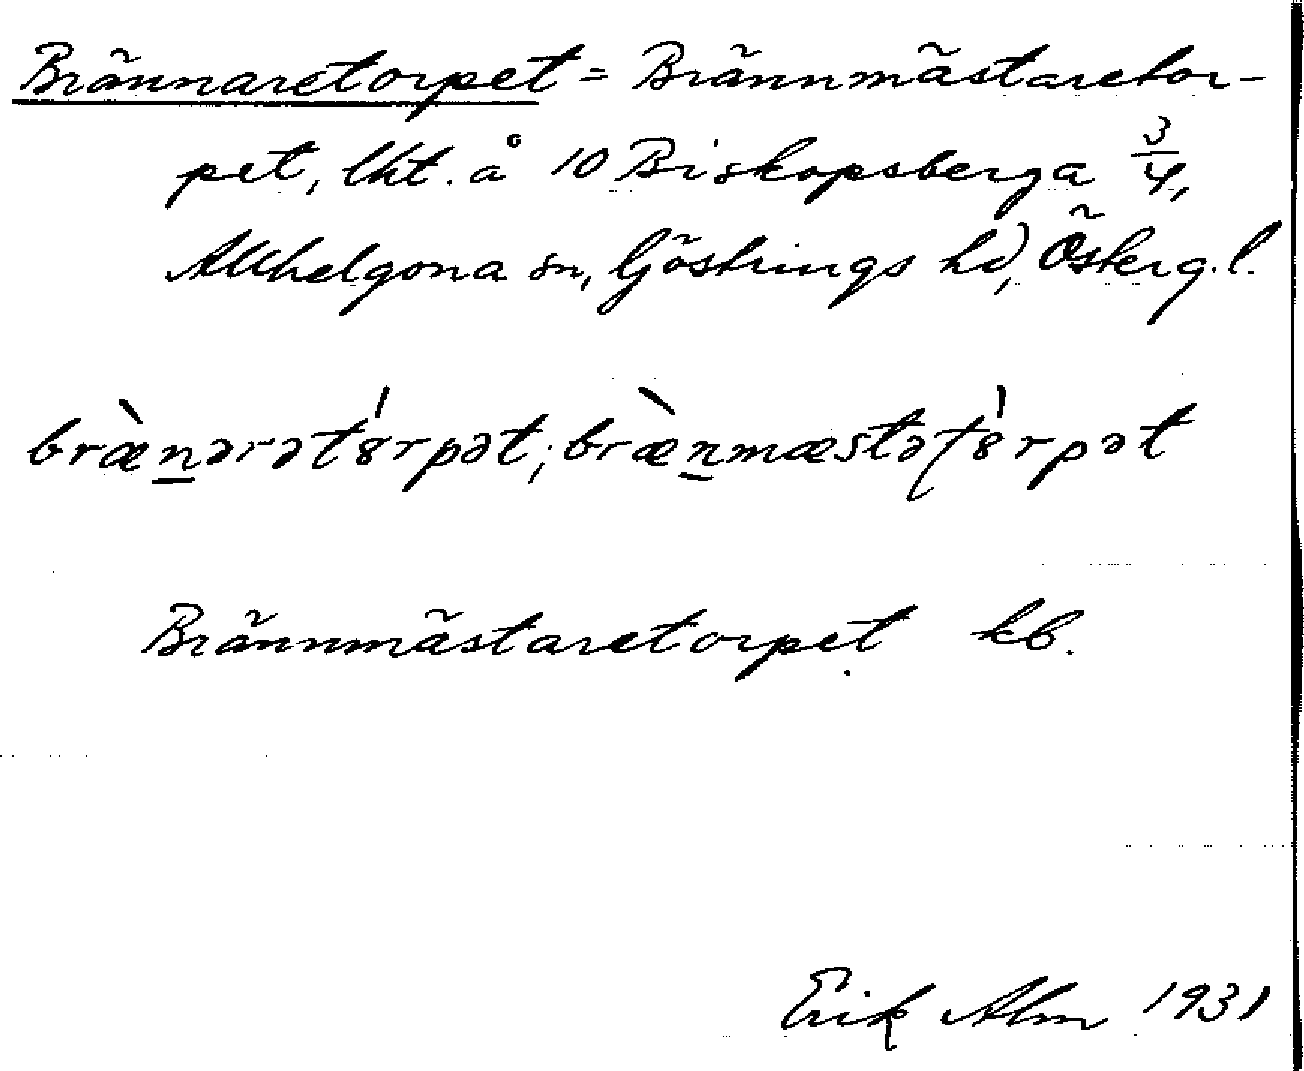 Brännaretorpet = Brännmästaretor-
pet, lht. å 10 Biskopsberga 3/4,
Allhelgona sn, Göstrings hd, Österg. l.
bræ̀n̲ərət8́rpət; bræ̀n̲mæstəʈ8́rpət
Brännmästaretorpet kb.
Erik Alm 1931